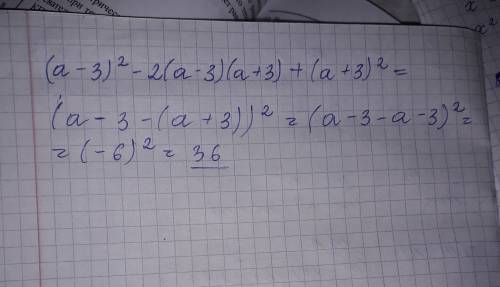 (a-3)² - 2(a-3)(a+3) + (a+3)² =
(a - 3 - (a + 3))² = (a-3-a-3)² =
= (-6)² = 36